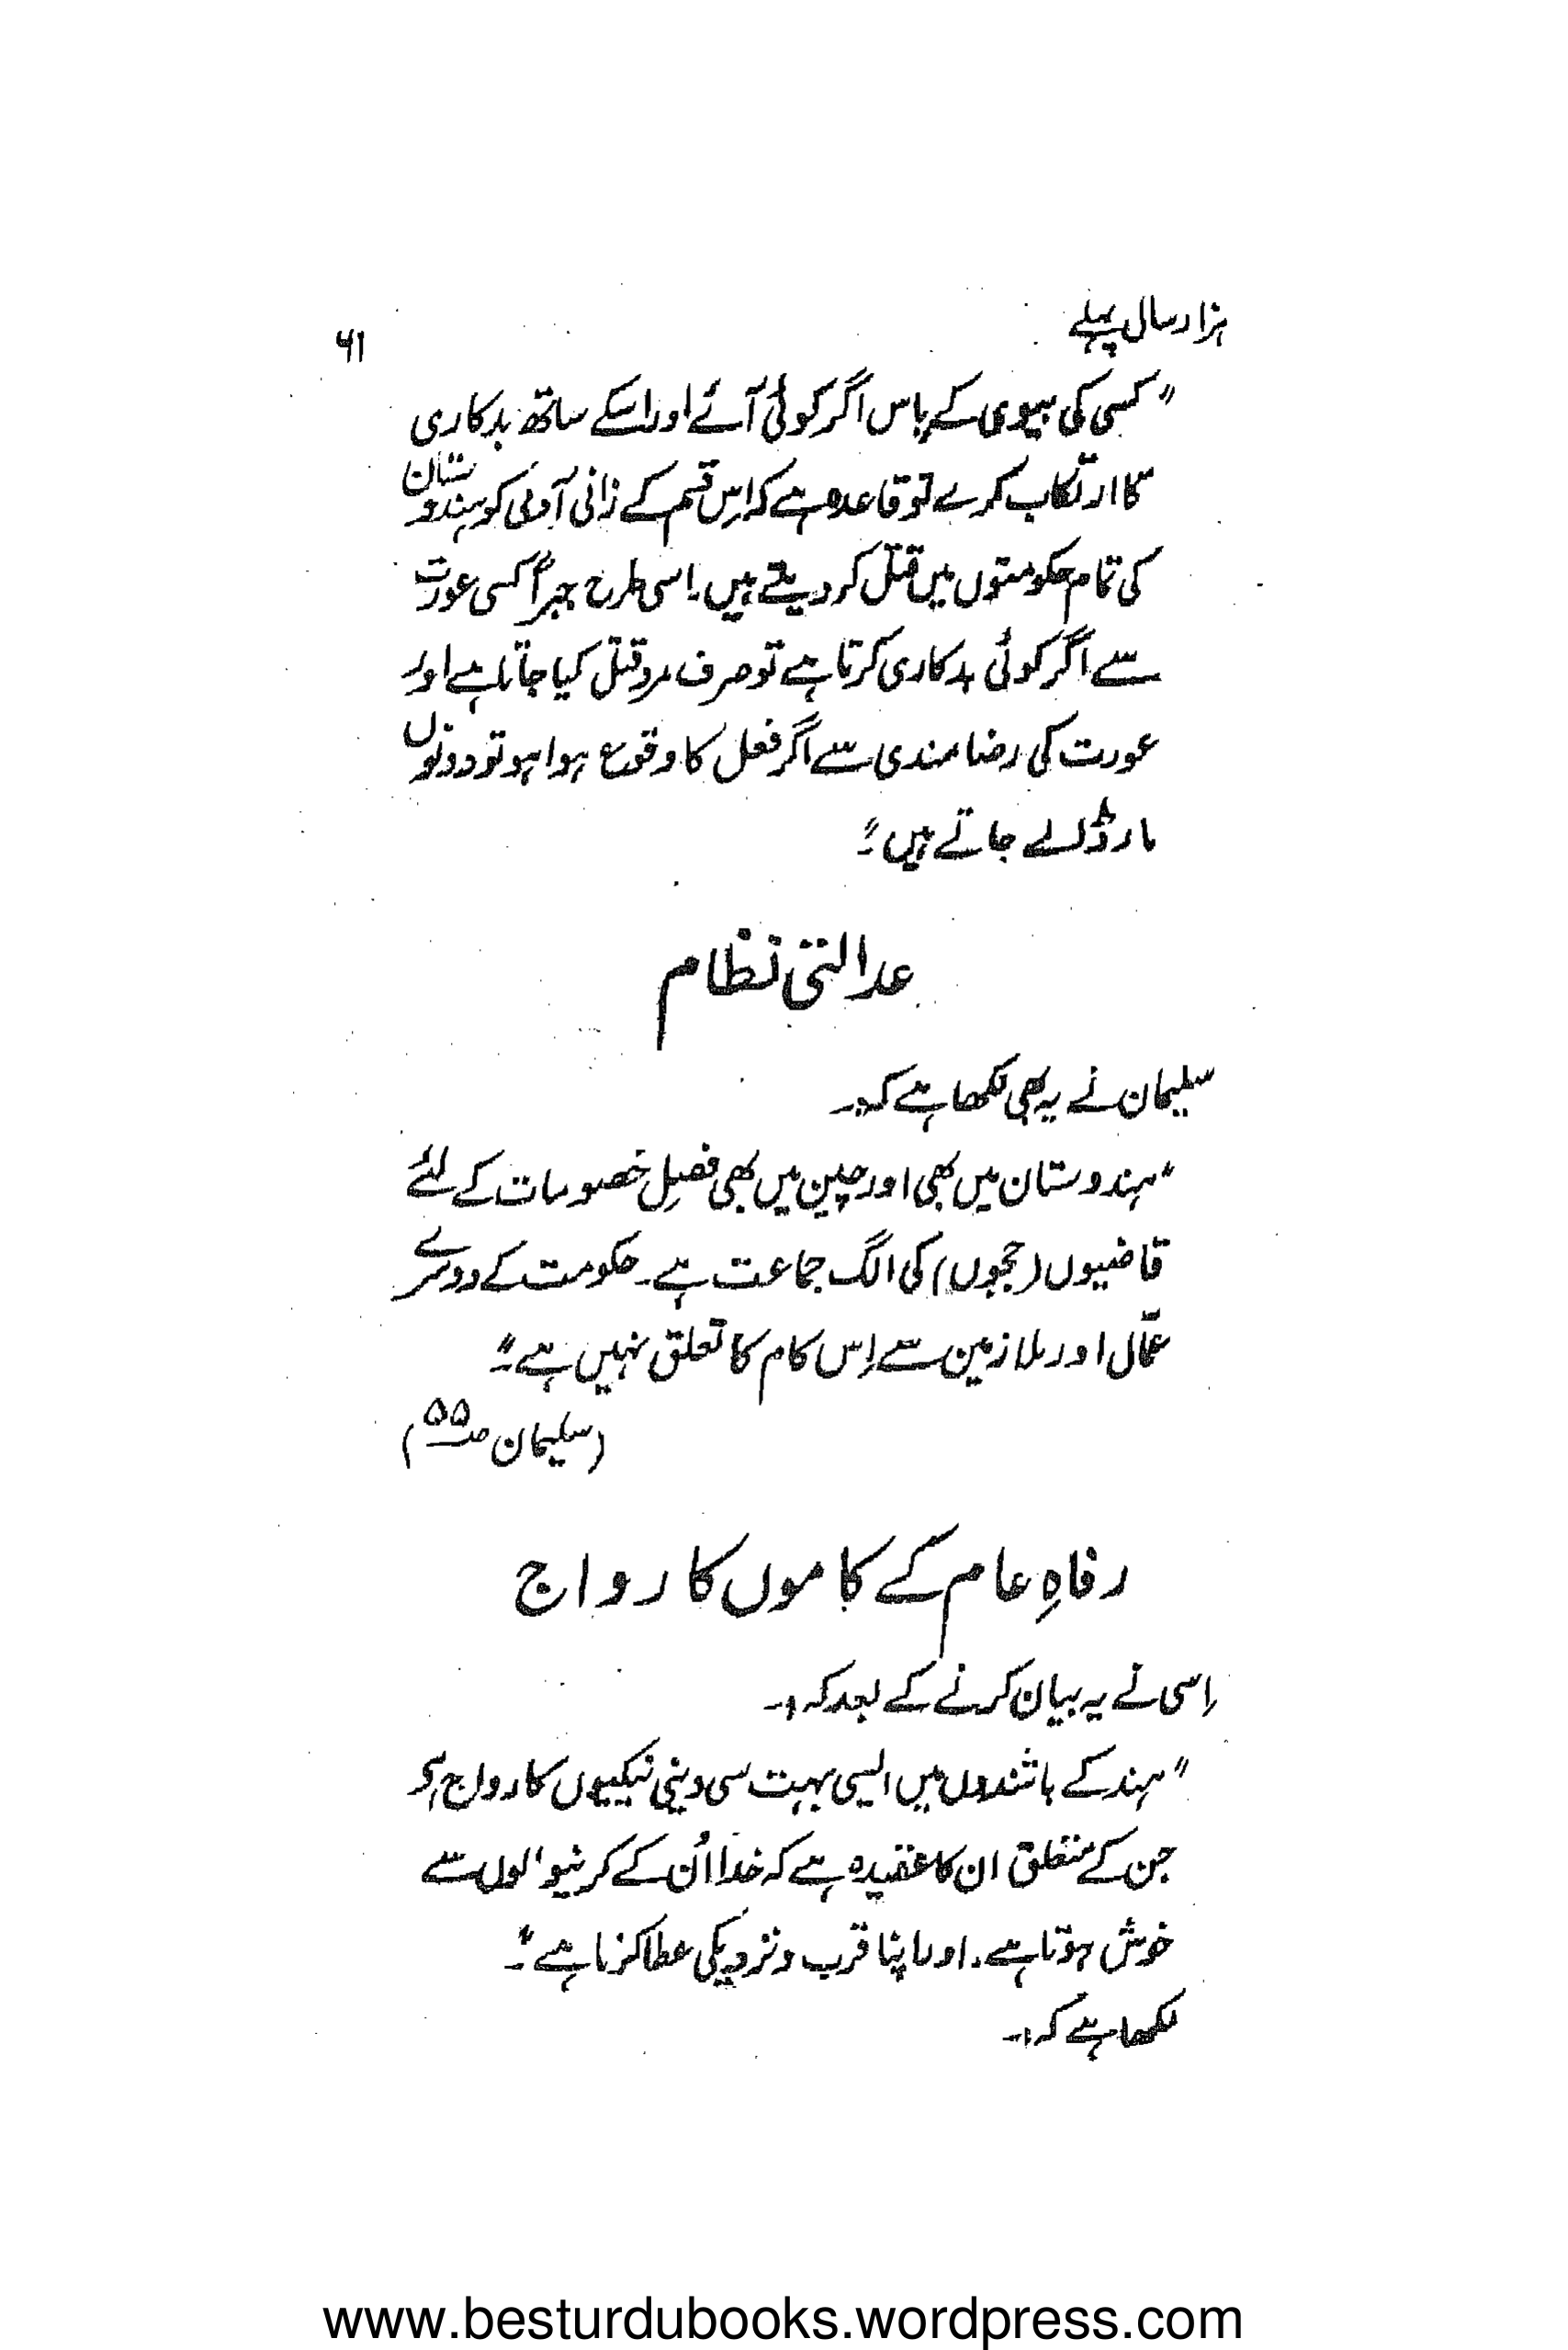 ہزار سال پہلے
۶۱
"کسی کی بیوی کے پاس اگر کوئی آئے اور اسکے ساتھ بدکاری
کا ارتکاب کرے تو قاعدہ ہے کہ اِس قسم کے زانی آدمی کو ہندوستان
کی تمام حکومتوں میں قتل کر دیتے ہیں۔ اِسی طرح جبراً کسی عورت
سے اگر کوئی بدکاری کرتا ہے تو صرف مرد قتل کیا جاتا ہے اور
عورت کی رضامندی سے اگر فعل کا وقوع ہوا ہو تو دونوں
مار ڈالے جاتے ہیں۔"
عدالتی نظام
سلیمان نے یہ بھی لکھا ہے کہ:۔
"ہندوستان میں بھی اور چین میں بھی فصلِ خصومات کے لئے
قاضیوں (ججوں) کی الگ جماعت ہے۔ حکومت کے دوسرے
عمّال اور ملازمین سے اِس کام کا تعلق نہیں ہے۔"
(سلیمان صـ ۵۵)
رفاہِ عام کے کاموں کا رواج
اِسی نے یہ بیان کرنے کے بعد کہ:۔
"ہند کے باشندوں میں ایسی بہت سی دینی نیکیوں کا رواج ہے
جن کے متعلق ان کا عقیدہ ہے کہ خدا اُن کے کرنیوالوں سے
خوش ہوتا ہے۔ اور اپنا قرب و نزدیکی عطا کرتا ہے۔"
لکھا ہے کہ:۔
www.besturdubooks.wordpress.com